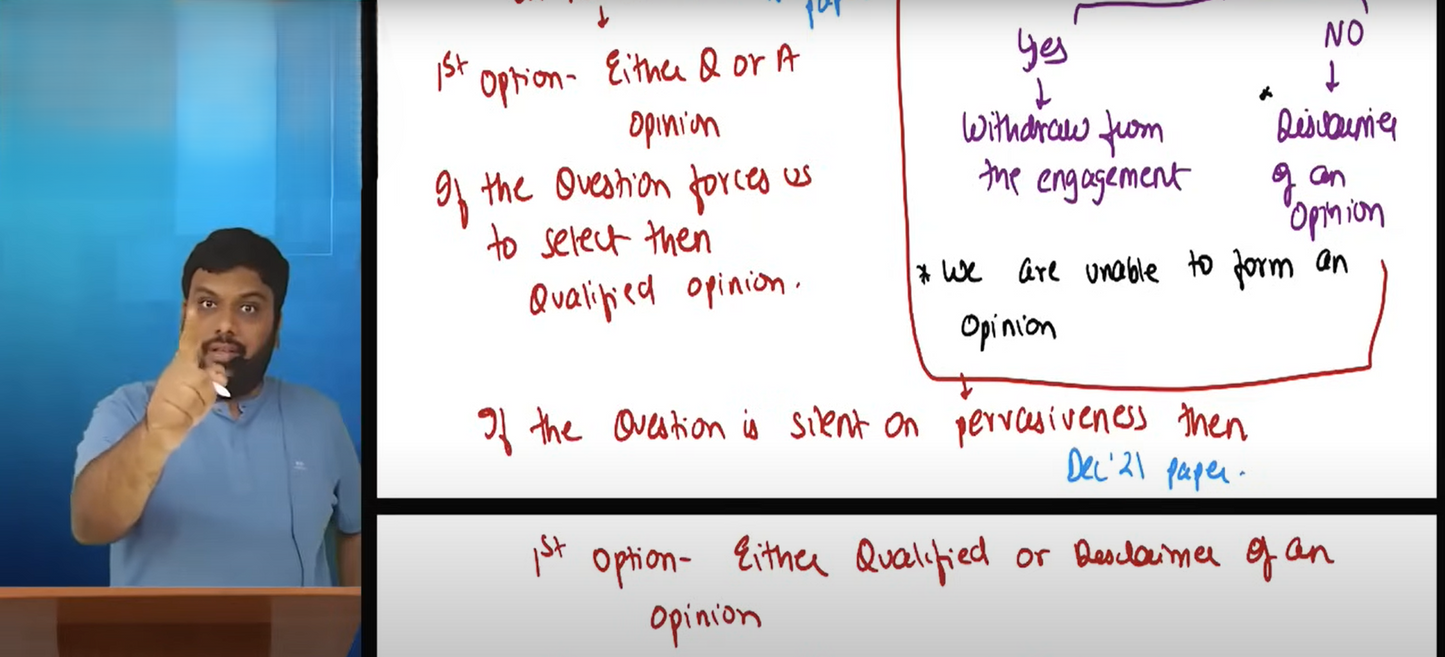 pap
1st option- Either Q or A
opinion
If the Question forces us
to select then
Qualified opinion.
Yes
NO
Withdraw from
the engagement
* Disclaimer
of an
opinion
* We are unable to form an
opinion
If the Question is silent on pervasiveness then
Dec'21 paper.
1st option- Either Qualified or Disclaimer of an
opinion